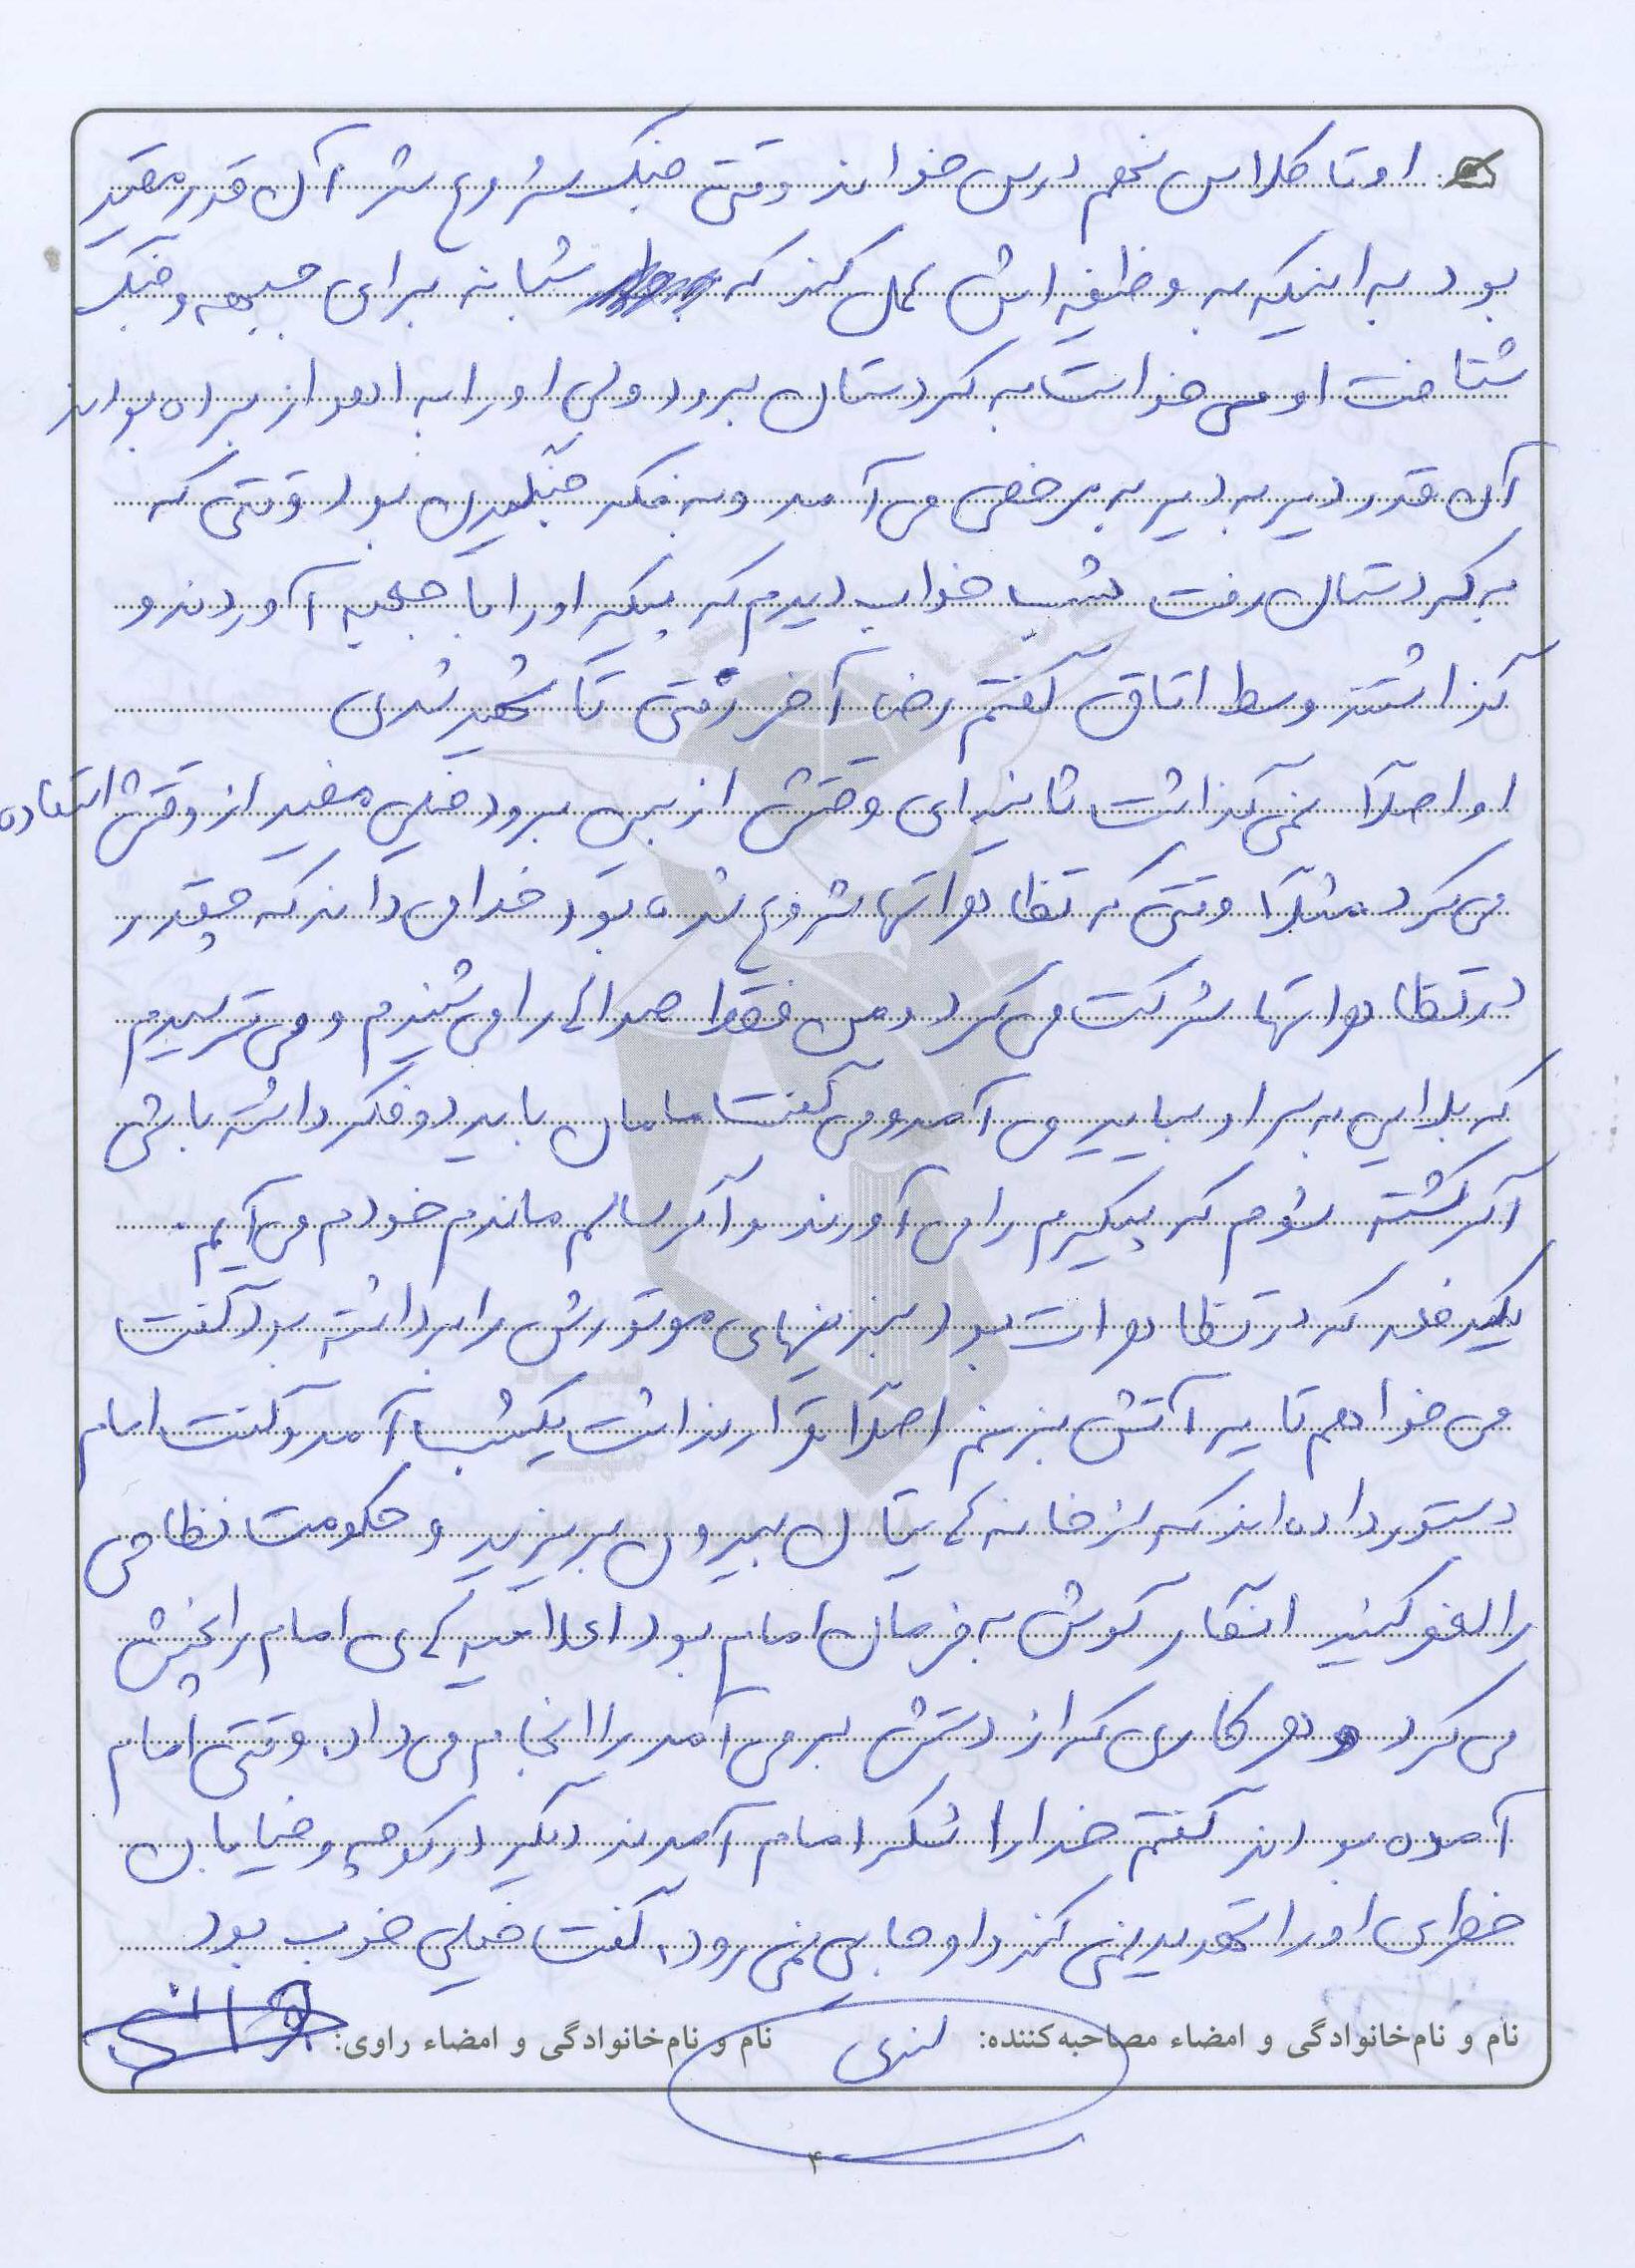 او تا کلاس نهم درس خواند وقتی جنگ شروع شد آن قدر مقید
بود به اینکه به وظیفه اش عمل کند که شبانه برای جبهه و جنگ
شتافت او می خواست به کردستان برود ولی او را به اهواز برده بودند
آن قدر دیر به دیر به مرخصی می آمد و به فکر جنگیدن بود وقتی که
به کردستان رفت شب خواب دیدم که پیکر او را با جعبه آوردند و
گذاشتند وسط اتاق گفتم رضا آخر رفتی تا شهید شدی
او اصلاً نمی گذاشت ثانیه ای وقتش از بین برود خیلی مفید از وقتش استفاده
می کرد مثلاً وقتی که تظاهراتها شروع شده بود خدا می داند که چقدر
در تظاهراتها شرکت می کرد و من فقط صداها را می شنیدم و می ترسیدم
که بلایی به سر او بیاید می آمد و می گفت مامان باید دو فکر داشته باشی
اگر کشته شوم که پیکرم را می آورند و اگر سالم ماندم خودم می آیم.
یکدفعه که در تظاهرات بود بنزینهای موتورش را برداشته بود گفت
می خواهم تایر آتش بزنم اصلاً قرار نداشت یکشب آمد و گفت امام
دستور داده اند که از خانه هایتان بیرون بریزید و حکومت نظامی
را لغو کنید انقدر گوش به فرمان امام بود اعلامیه های امام را پخش
می کرد و هر کاری که از دستش بر می آمد را انجام می داد. وقتی امام
آمده بودند گفتم خدا را شکر امام آمدند دیگر در کوچه و خیابان
خطری او را تهدید نمی کند و او جایی نمی رود، گفت خیلی خوب بود
نام و نام‌خانوادگی و امضاء مصاحبه‌کننده: نام و نام‌خانوادگی و امضاء راوی:
۴